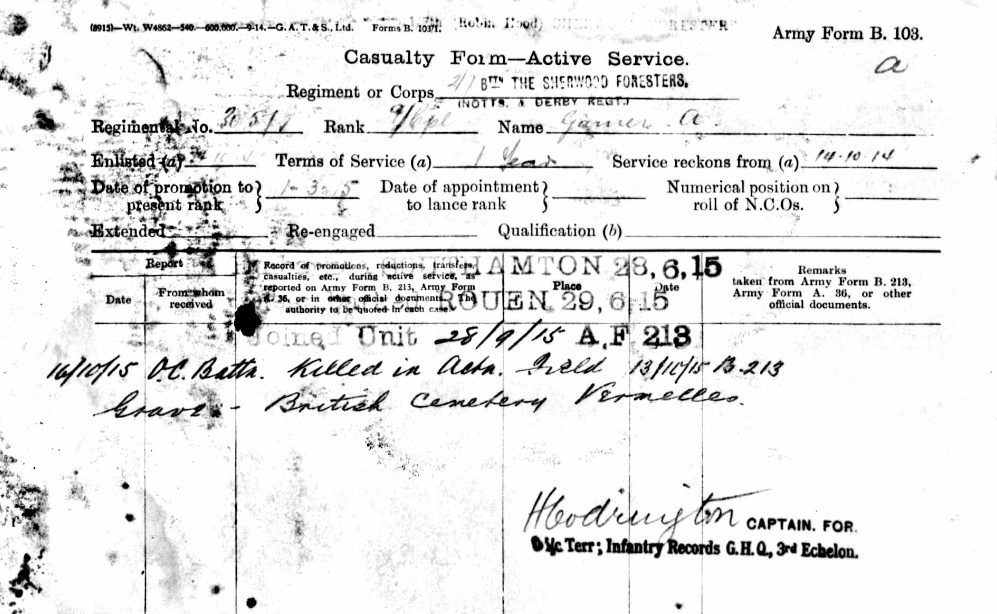 (8915)—Wt. W4862—540.—600,000.—9-14.—G. A. T. & S., Ltd. Forms B. 103/1.
(Robin Hood)
Army Form B. 103.
Casualty Form—Active Service.
a
Regiment or Corps 2/7 BTTN THE SHERWOOD FORESTERS.
(NOTTS. & DERBY REGT.)
Regimental No. Rank Name A.
Enlisted (a) Terms of Service (a) 1 Year Service reckons from (a) 14.10.14
Date of promotion to present rank 1-3-15 Date of appointment to lance rank Numerical position on roll of N.C.Os.
Extended Re-engaged Qualification (b)
Report
Date
From whom received
Record of promotions, reductions, transfers, casualties, etc., during active service, as reported on Army Form B. 213, Army Form A. 36, or in other official documents. The authority to be quoted in each case.
Place
Date
Remarks
taken from Army Form B. 213, Army Form A. 36, or other official documents.
28,6,15
ROUEN 29,6,15
Joined Unit 28/9/15 A.F 213
16/10/15 O.C. Battn. Killed in Actn. Field 13/10/15 B.213
Grave - British Cemetery Vermelles.
HCodrington CAPTAIN. FOR.
O i/c Terr; Infantry Records G.H.Q., 3rd Echelon.